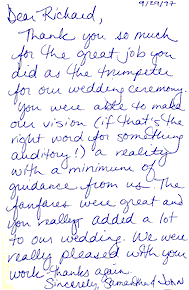 9/29/97
Dear Richard,
Thank you so much
for the great job you
did as the trumpeter
for our wedding ceremony.
You were able to make
our vision (if that's the
right word for something
auditory!) a reality
with a minimum of
guidance from us. The
fanfares were great and
you really added a lot
to our wedding. We were
really pleased with your
work. Thanks again.
Sincerely, Samantha & John